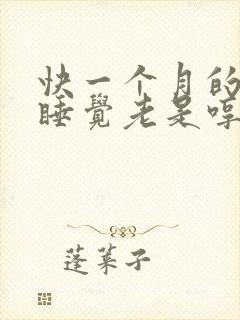 快一个月的
睡覺老是哼
蓬莱子